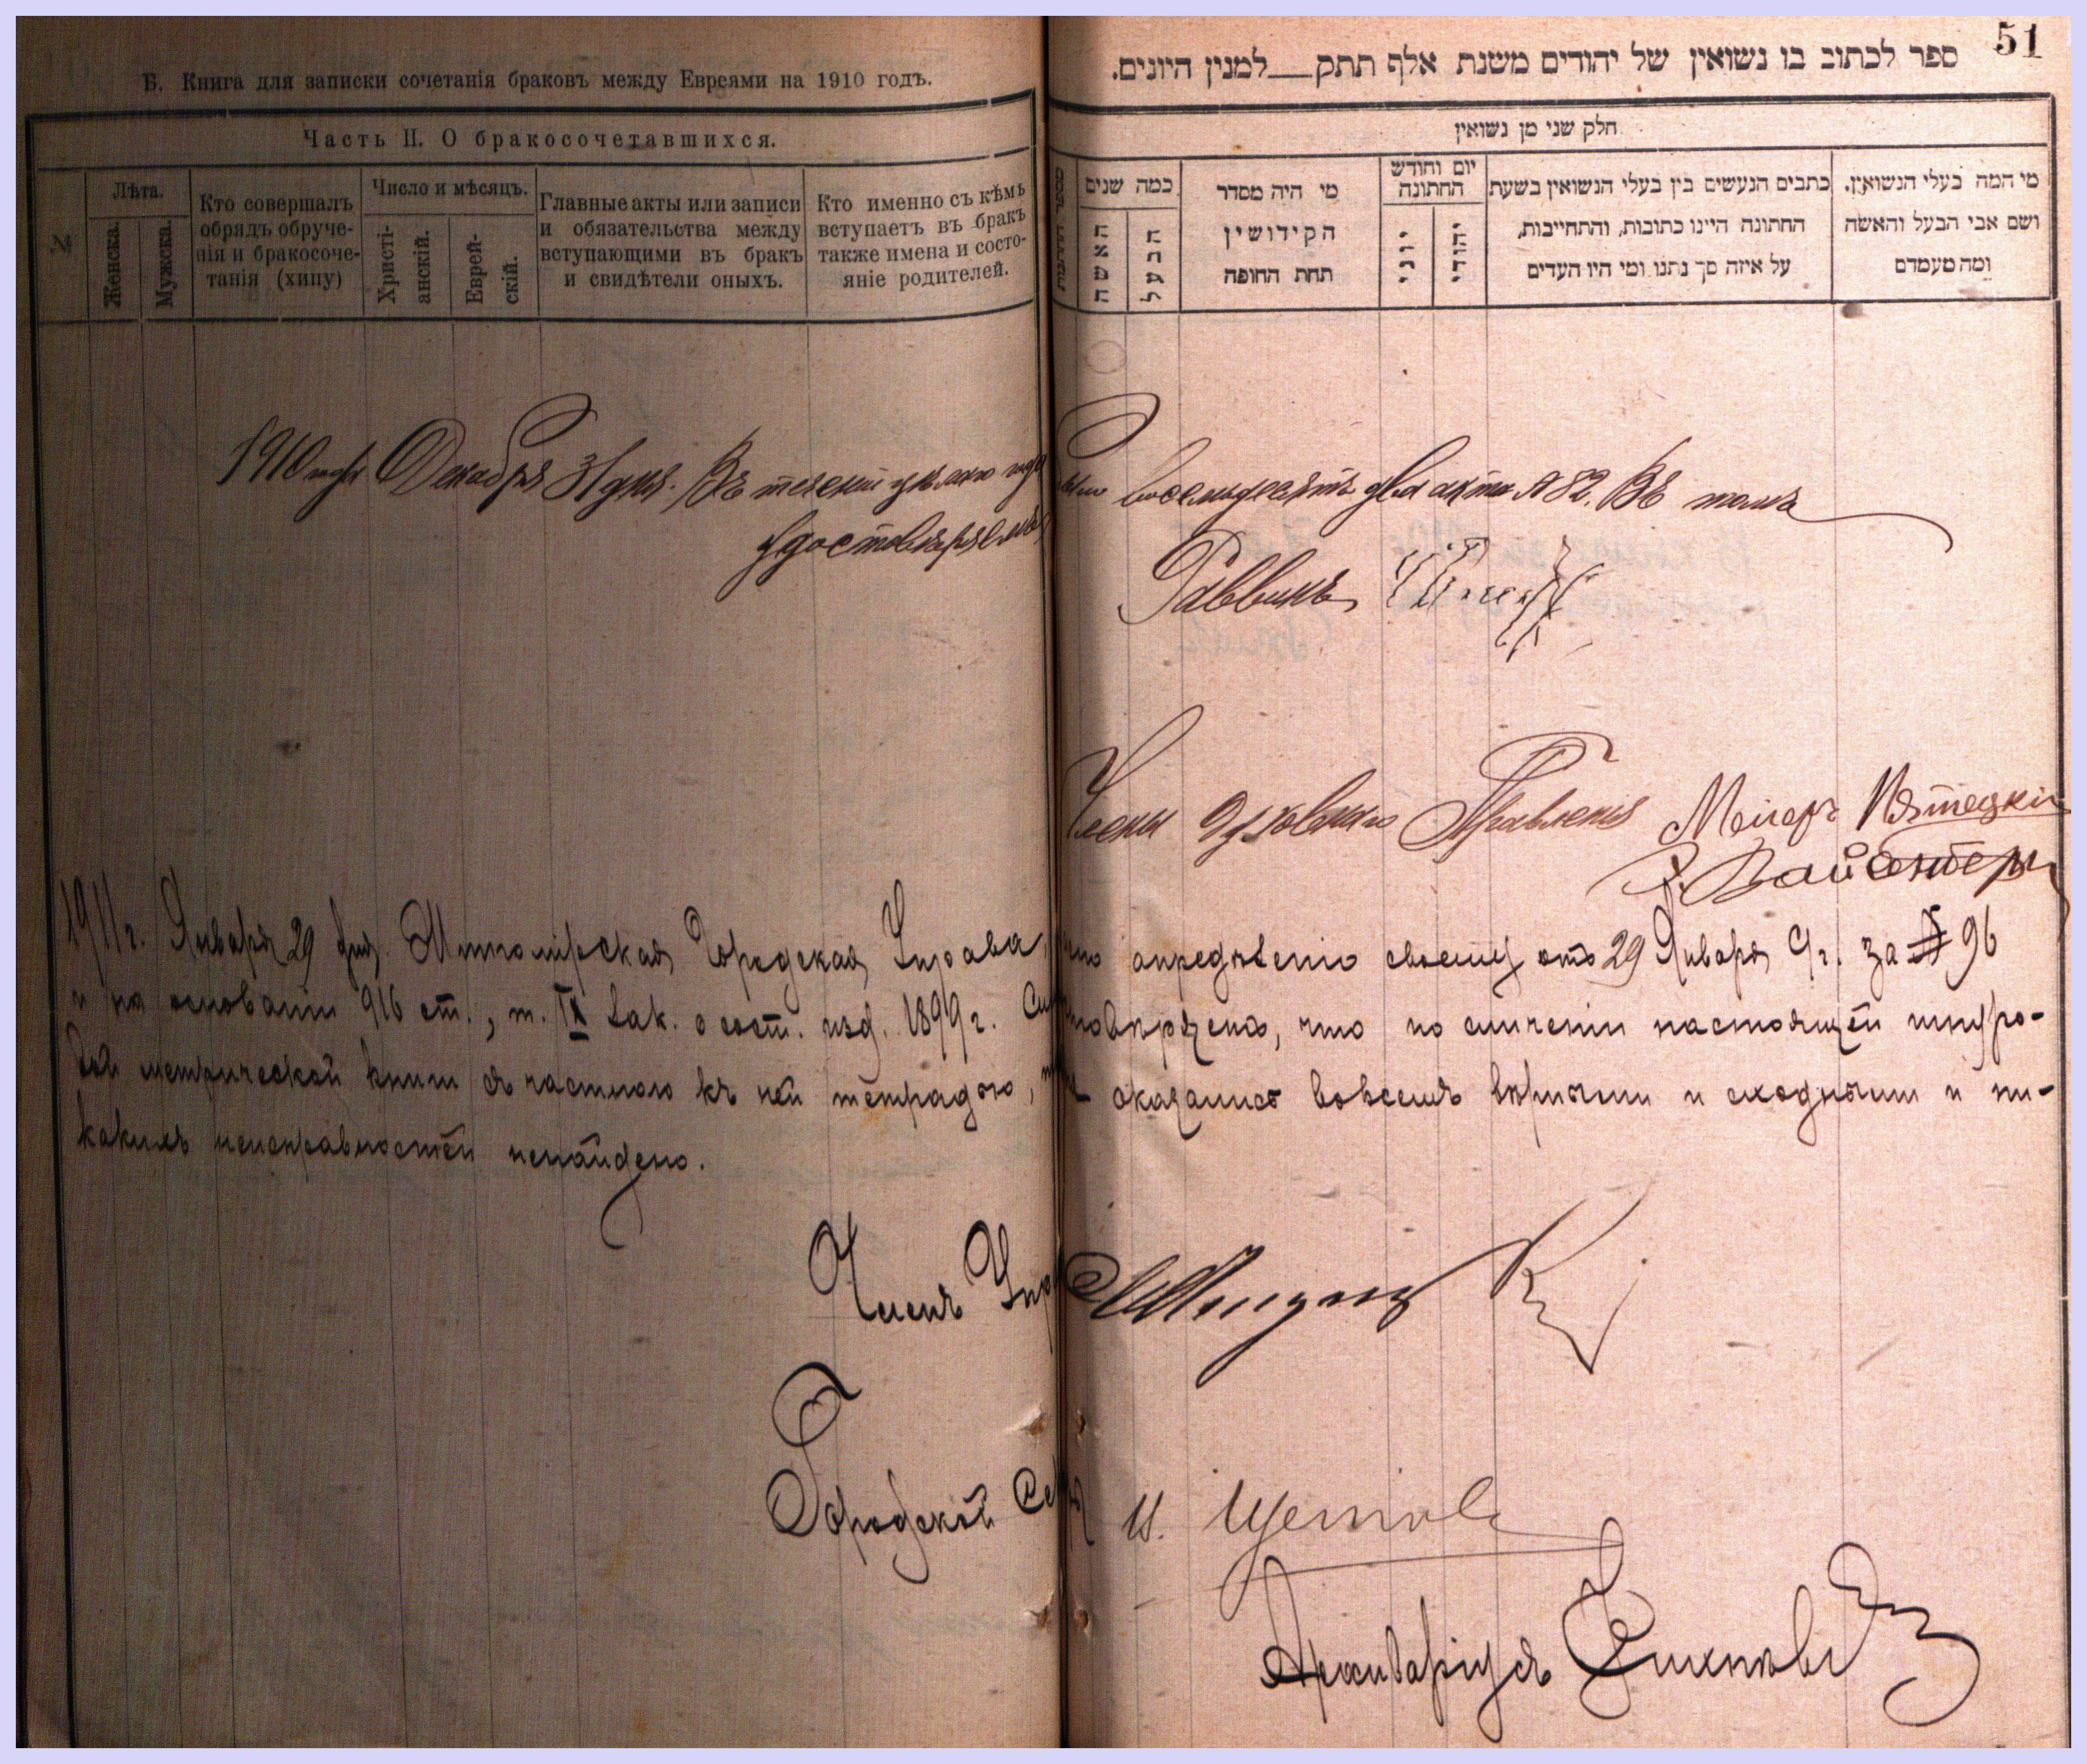 Б. Книга для записки сочетанія браковъ между Евреями на 1910 годъ.
Часть II. О бракосочетавшихся.
№
Лѣта.
Женска.
Мужска.
Кто совершалъ
обрядъ обруче-
нія и бракосоче-
танія (хипу)
Число и мѣсяцъ.
Христі-
анскій.
Еврей-
скій.
Главные акты или записи
и обязательства между
вступающими въ бракъ
и свидѣтели оныхъ.
Кто именно съ кѣмъ
вступаетъ въ бракъ
также имена и состо-
яніе родителей.
51
ספר לכתוב בו נשואין של יהודים משנת אלף תתק__למנין היונים.
חלק שני מן נשואין
כמה שנים
האשה
הבעל
מי היה מסדר
הקידושין
תחת החופה
יום וחודש
החתונה
יוני
יהודי
כתבים הנעשים בין בעלי הנשואין בשעת
החתונה היינו כתובות, והתחייבות,
על איזה סך נתנו ומי היו העדים
מי המה בעלי הנשואין,
ושם אבי הבעל והאשה
ומה מעמדם
1910 года Декабря 31 дня. Въ теченіи цѣлаго года восемьдесятъ два акта № 82. Въ томъ
удостовѣряемъ
Раввинъ
Члены Духовнаго Правленія Мейеръ Пятецкій
1911 г. Января 29 дня. Житомірская Городская Управа, по опредѣленію своему отъ 29 Января с/г. за № 96
и на основаніи 916 ст., т. IX Зак. о сост. изд. 1899 г. что по сличеніи настоящей шнуро-
вой метрической книги съ частною къ ней тетрадью, оказались вовсемъ вѣрными и сходными и ни-
какихъ неисправностей ненайдено.
Членъ Упр
Городской Секр И.
Архиваріусъ